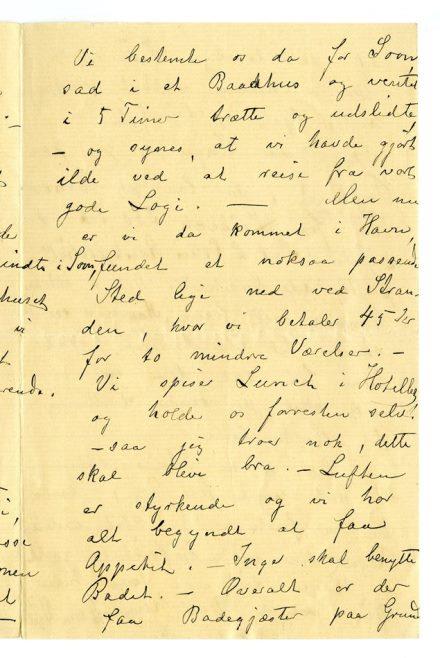 Vi bestemte os da for Soon,
sad i et Baadhus og ventet
i 5 Timer trætte og udslidte,
– og synes, at vi havde gjört
ilde ved at reise fra vort
gode Logi. — Men nu
er vi da kommet i Havn,
i Soon fundet et noksaa passende
Sted lige ned ved Stran-
den, hvor vi betaler 45 Kr
for to mindre Værelser. –
Vi spiser Lunch i Hotellet
og holde os forresten selv.
– saa jeg troer nok, dette
skal blive bra. – Luften
er styrkende og vi har
alt begyndt at faa
Appetit. – Inga skal benytte
Badet. – Overalt er der
faa Badegjæster paa Grund